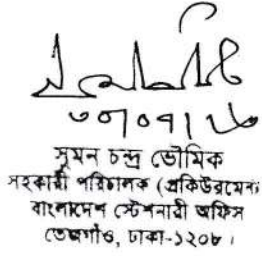 ৩০।০৭।২৬
সুমন চন্দ্র ভৌমিক
সহকারী পরিচালক (প্রকিউরমেন্ট)
বাংলাদেশ স্টেশনারী অফিস
তেজগাঁও, ঢাকা-১২০৮।